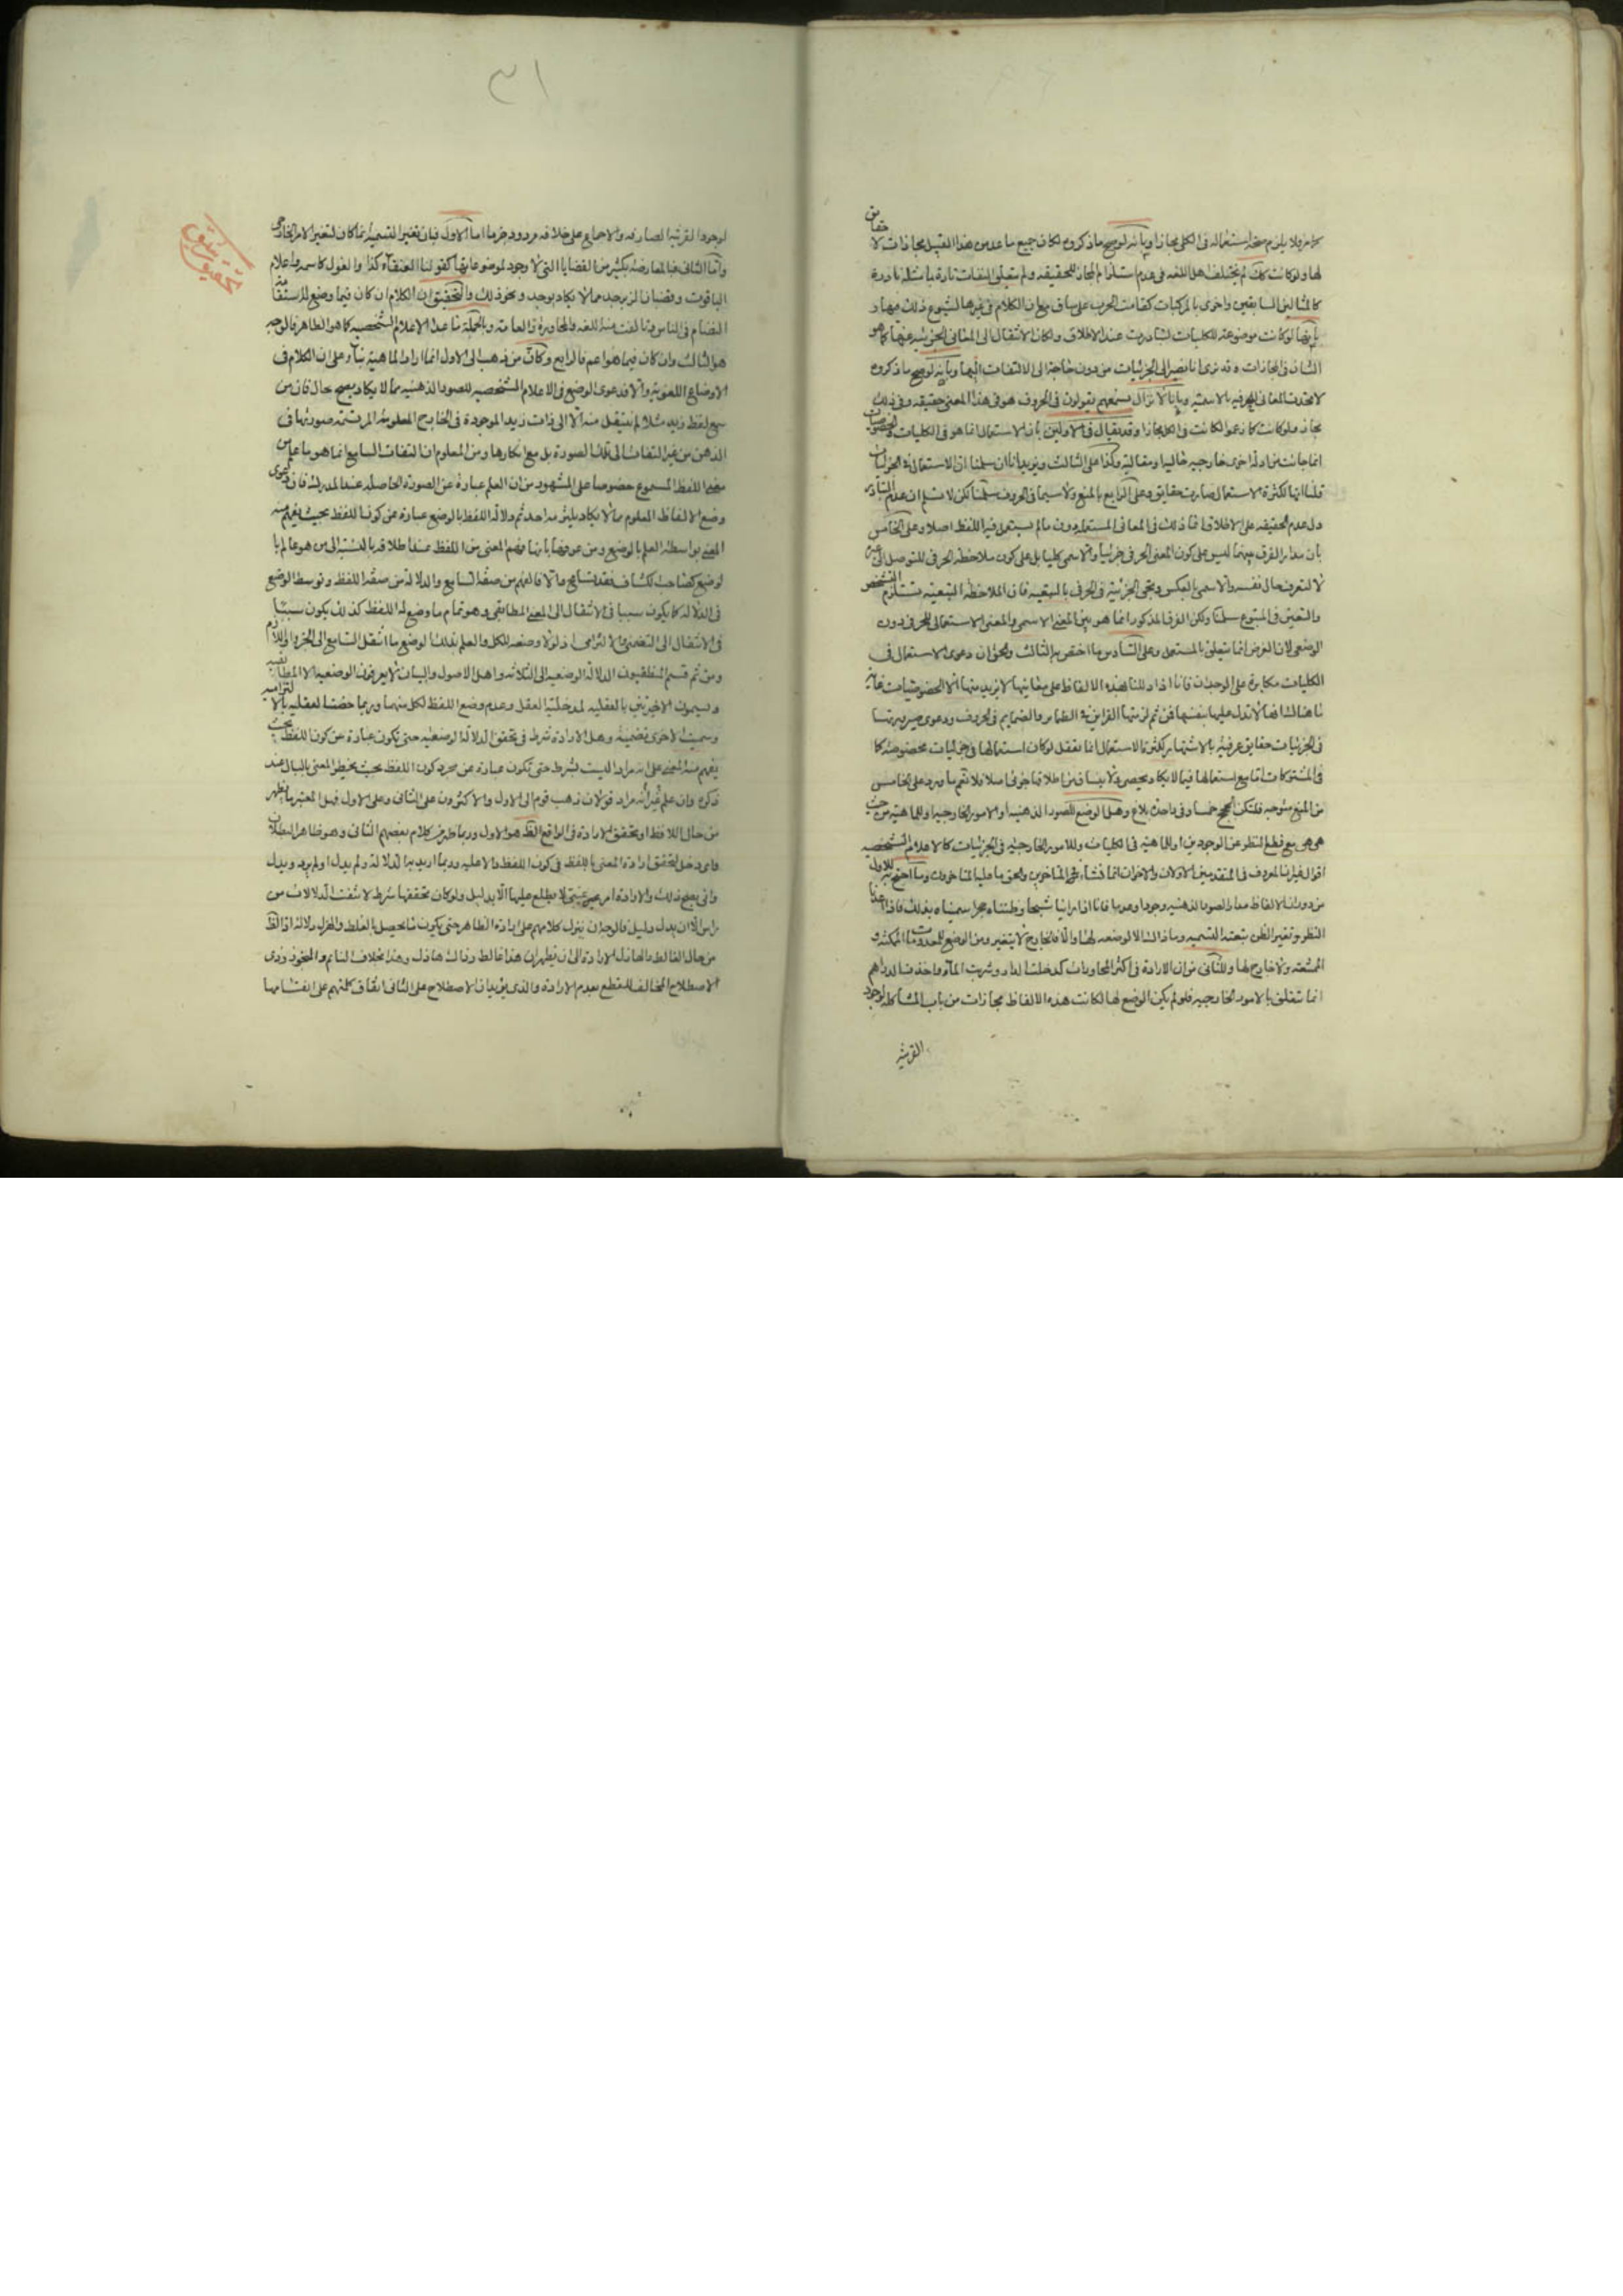 حقايق
كما مر ولا يلزم صحة استعماله فى الكلى مجازا وبانه لو صح ما ذكروه لكان جميع ما عد من هذا القبيل مجازات لا
لها ولو كانت كك لم يختلف اهل اللغه فى عدم استلزام المجاز للحقيقه ولم
كالمثالين السابقين واخرى بالمركبات كقامت الحرب على ساق مع ان الكلام فى غيرها لشيوع ذلك فيها و
بانها لو كانت موضوعة للكليات لتبادرت عند الاطلاق ولكان الانتقال الى المعانى الجزئيه عنها كما هو
الشان فى المجازات وقد نرى انا نصير الى الجزئيات من دون حاجة الى الالتفات اليها وبانه لو صح ما ذكروه
لاتحدت المعانى الحرفيه بالاسميه وبانا لا نزال نسمعهم يقولون فى الحروف هو فى هذا المعنى حقيقه وفى ذلك
مجاز فلو كانت كما زعموا لكانت فى الكل مجازا وقد يقال فى الاولين بان الاستعمال انما هو فى الكليات والخصوصيات
انما جائت من ادلة اخرى خارجيه حاليه او مقاليه وكذا على الثالث ويزيد بانا ان سلمنا ان الاستعمال فى الجزئيات
قلنا انها لكثرة الاستعمال صارت حقايق وعلى الرابع بالمنع ولا سيما فى الحروف سلمنا لكن لا نسلم ان عدم التبادر
دل عدم الحقيقه على الاطلاق انما ذلك فى المعانى المستعمله دون ما لم يستعمل فيه اللفظ اصلا وعلى الخامس
بان مدار الفرق بينهما ليس على كون المعنى الحرفى جزئيا والاسمى كليا بل على كون ملاحظة الحرفى للتوصل الى غيره
لا لتعرف حال نفسه والاسمى بالعكس ويجئ الجزئية فى الحرفى بالتبعيه فان الملاحظة التبعيه تستلزم التشخص
والتعين فى المتبوع سلمنا ولكن الفرق المذكور انما هو بين المعنى الاسمى والمعنى الاستعمالى للحرفى دون
الوضعى لان الغرض انما يتعلق بالمستعمل وعلى السادس ما اختص به الثالث والحق ان دعوى الاستعمال فى
الكليات مكابرة على الوجدان فانا اذا دللنا بهذه الالفاظ على معانيها لا نريد منها الا الخصوصيات غاية
ما هناك انها لا تدل عليها بنفسها فمن ثم لزمتها القراين فى الظماير والضمايم فى الحروف ودعوى صيرورتها
فى الجزئيات حقايق عرفيه بالاشتهار لكثرة الاستعمال انما تعقل لو كان استعمالها فى جزئيات مخصوصه كما
فى المشتركات اما مع استعمالها فيما لا يكاد يحصى فلا
من المنع متوجه فلتكن الحجج خمسا وفى واحدة بلاغ وهل الوضع للصور الذهنيه او الامور الخارجيه او للماهيه من حيث
هى هى مع قطع النظر عن الوجودين او للماهيه فى الكليات وللامور الخارجيه فى الجزئيات كالاعلام الشخصيه
اقوال خيرها المعروف فى المتقدمين الاولان والاخران انما نشاء فى المتاخرين والحق ما عليه المتاخرون وما احتج به للاول
من دوران الالفاظ مدار الصور الذهنيه وجودا وعدما فانا اذا راينا شبحا وظنناه حجرا سميناه بذلك فاذا
النظر وتغير الظن تبعته التسميه وما ذاك الا لوضعه لها والا فالخارج لا يتغير ومن الوضع للمعدومات الممكنه و
الممتنعه ولا خارج لها وللثانى من ان الارادة فى اكثر المحاورات كدخلت الدار وشربت الماء واخذت الدراهم
انما تتعلق بالامور الخارجيه فلو لم يكن الوضع لها لكانت هذه الالفاظ مجازات من باب المشاكله لوجود
القرينه
٣١
لوجود القرينه الصارفه والاجماع على خلافه مردود جزما اما الاول فبان تغير التسميه انما كان لتغير الامر الخارجى
واما الثانى فبالمعارضه بكثير من القضايا التى لا وجود لموضوعاتها كقولنا العنقاء كذا والغول كاسمه واعلام
الياقوت وقضبان الزبرجد مما لا يكاد يوجد ونحو ذلك والتحقيق ان الكلام ان كان فيما وضع له
هو الثالث وان كان فيما هو اعم فالرابع وكان من ذهب الى الاول انما اراد الماهيه بناء على ان الكلام فى
الاوضاع اللغويه والا فدعوى الوضع فى الاعلام الشخصيه للصور الذهنيه مما لا يكاد يصح بحال فان من
سمع لفظ زيد مثلا لم ينتقل منه الا الى ذات زيد الموجودة فى الخارج المعلومه المرتسمه صورتها فى
الذهن من غير التفات الى تلك الصورة بل مع انكارها ومن المعلوم ان التفات السامع انما هو
معنى اللفظ المسموع خصوصا على المشهور من ان العلم عبارة عن الصورة الحاصله عند المدرك فان دعوى
وضع الالفاظ المعلوم مما لا يكاد يلتزمه احد ثم دلالة اللفظ بالوضع عبارة عن كون اللفظ بحيث يفهم منه
المعنى بواسطة العلم بالوضع ومن عرفها بانها فهم المعنى من اللفظ عند اطلاقه بالنسبه الى من هو عالم با
لوضع كصاحب الكشاف فقد تسامح والا فالفهم من صفة السامع والدلالة من صفة اللفظ وتوسط الوضع
فى الدلاله كما يكون سببا فى الانتقال الى المعنى المطابقى وهو تمام ما وضع له اللفظ كذلك يكون سببا
فى الانتقال الى التضمنى والالتزامى اذ لولا وضعه للكل والعلم بذلك الوضع ما انتقل السامع الى الجزء واللازم
ومن ثم قسم المنطقيون الدلالة الوضعيه الى الثلاثه واهل الاصول والبيان لا يعرفون الوضعيه الا المطابقيه
ويسمون الاخيرتين بالعقليه لمدخلية العقل وعدم وضع اللفظ لكل منهما وربما خصت العقليه بالالتزاميه
وسميت الاخرى تضمنيه وهل الارادة شرط فى تحقق الدلالة الوضعيه حتى يكون عبارة عن كون اللفظ بحيث
يفهم منه المعنى على انه مراد او ليست بشرط حتى تكون عبارة عن مجرد كون اللفظ بحيث يخطر المعنى بالبال عند
ذكره وان علم انه غير مراد قولان ذهب قوم الى الاول والاكثرون على الثانى وعلى الاول فهل المعتبر ما يظهر
من حال اللافظ او تحقق الارادة فى الواقع الظ هو الاول وربما ظهر من كلام بعضهم الثانى وهو ظاهر البطلان
واى دخل لتحقق ارادة المعنى باللفظ فى كون اللفظ دالا عليه وربما اريد به الدلالة ولم يدل او لم يرد ويدل
وانى يصح ذلك والارادة امر غيبى لا يطلع عليها الا بدليل ولو كان تحققها شرط لانتفت الدلالات من
من حال الغالط والهازل الارادة الى ان يظهر ان هذا غالط وذاك هازل وهذا بخلاف النايم والمتحوذ وذى
الاصطلاح المخالف للقطع بعدم الارادة والذى يؤيد ان الاصطلاح على الثانى اتفاق كلمتهم على انقسامها